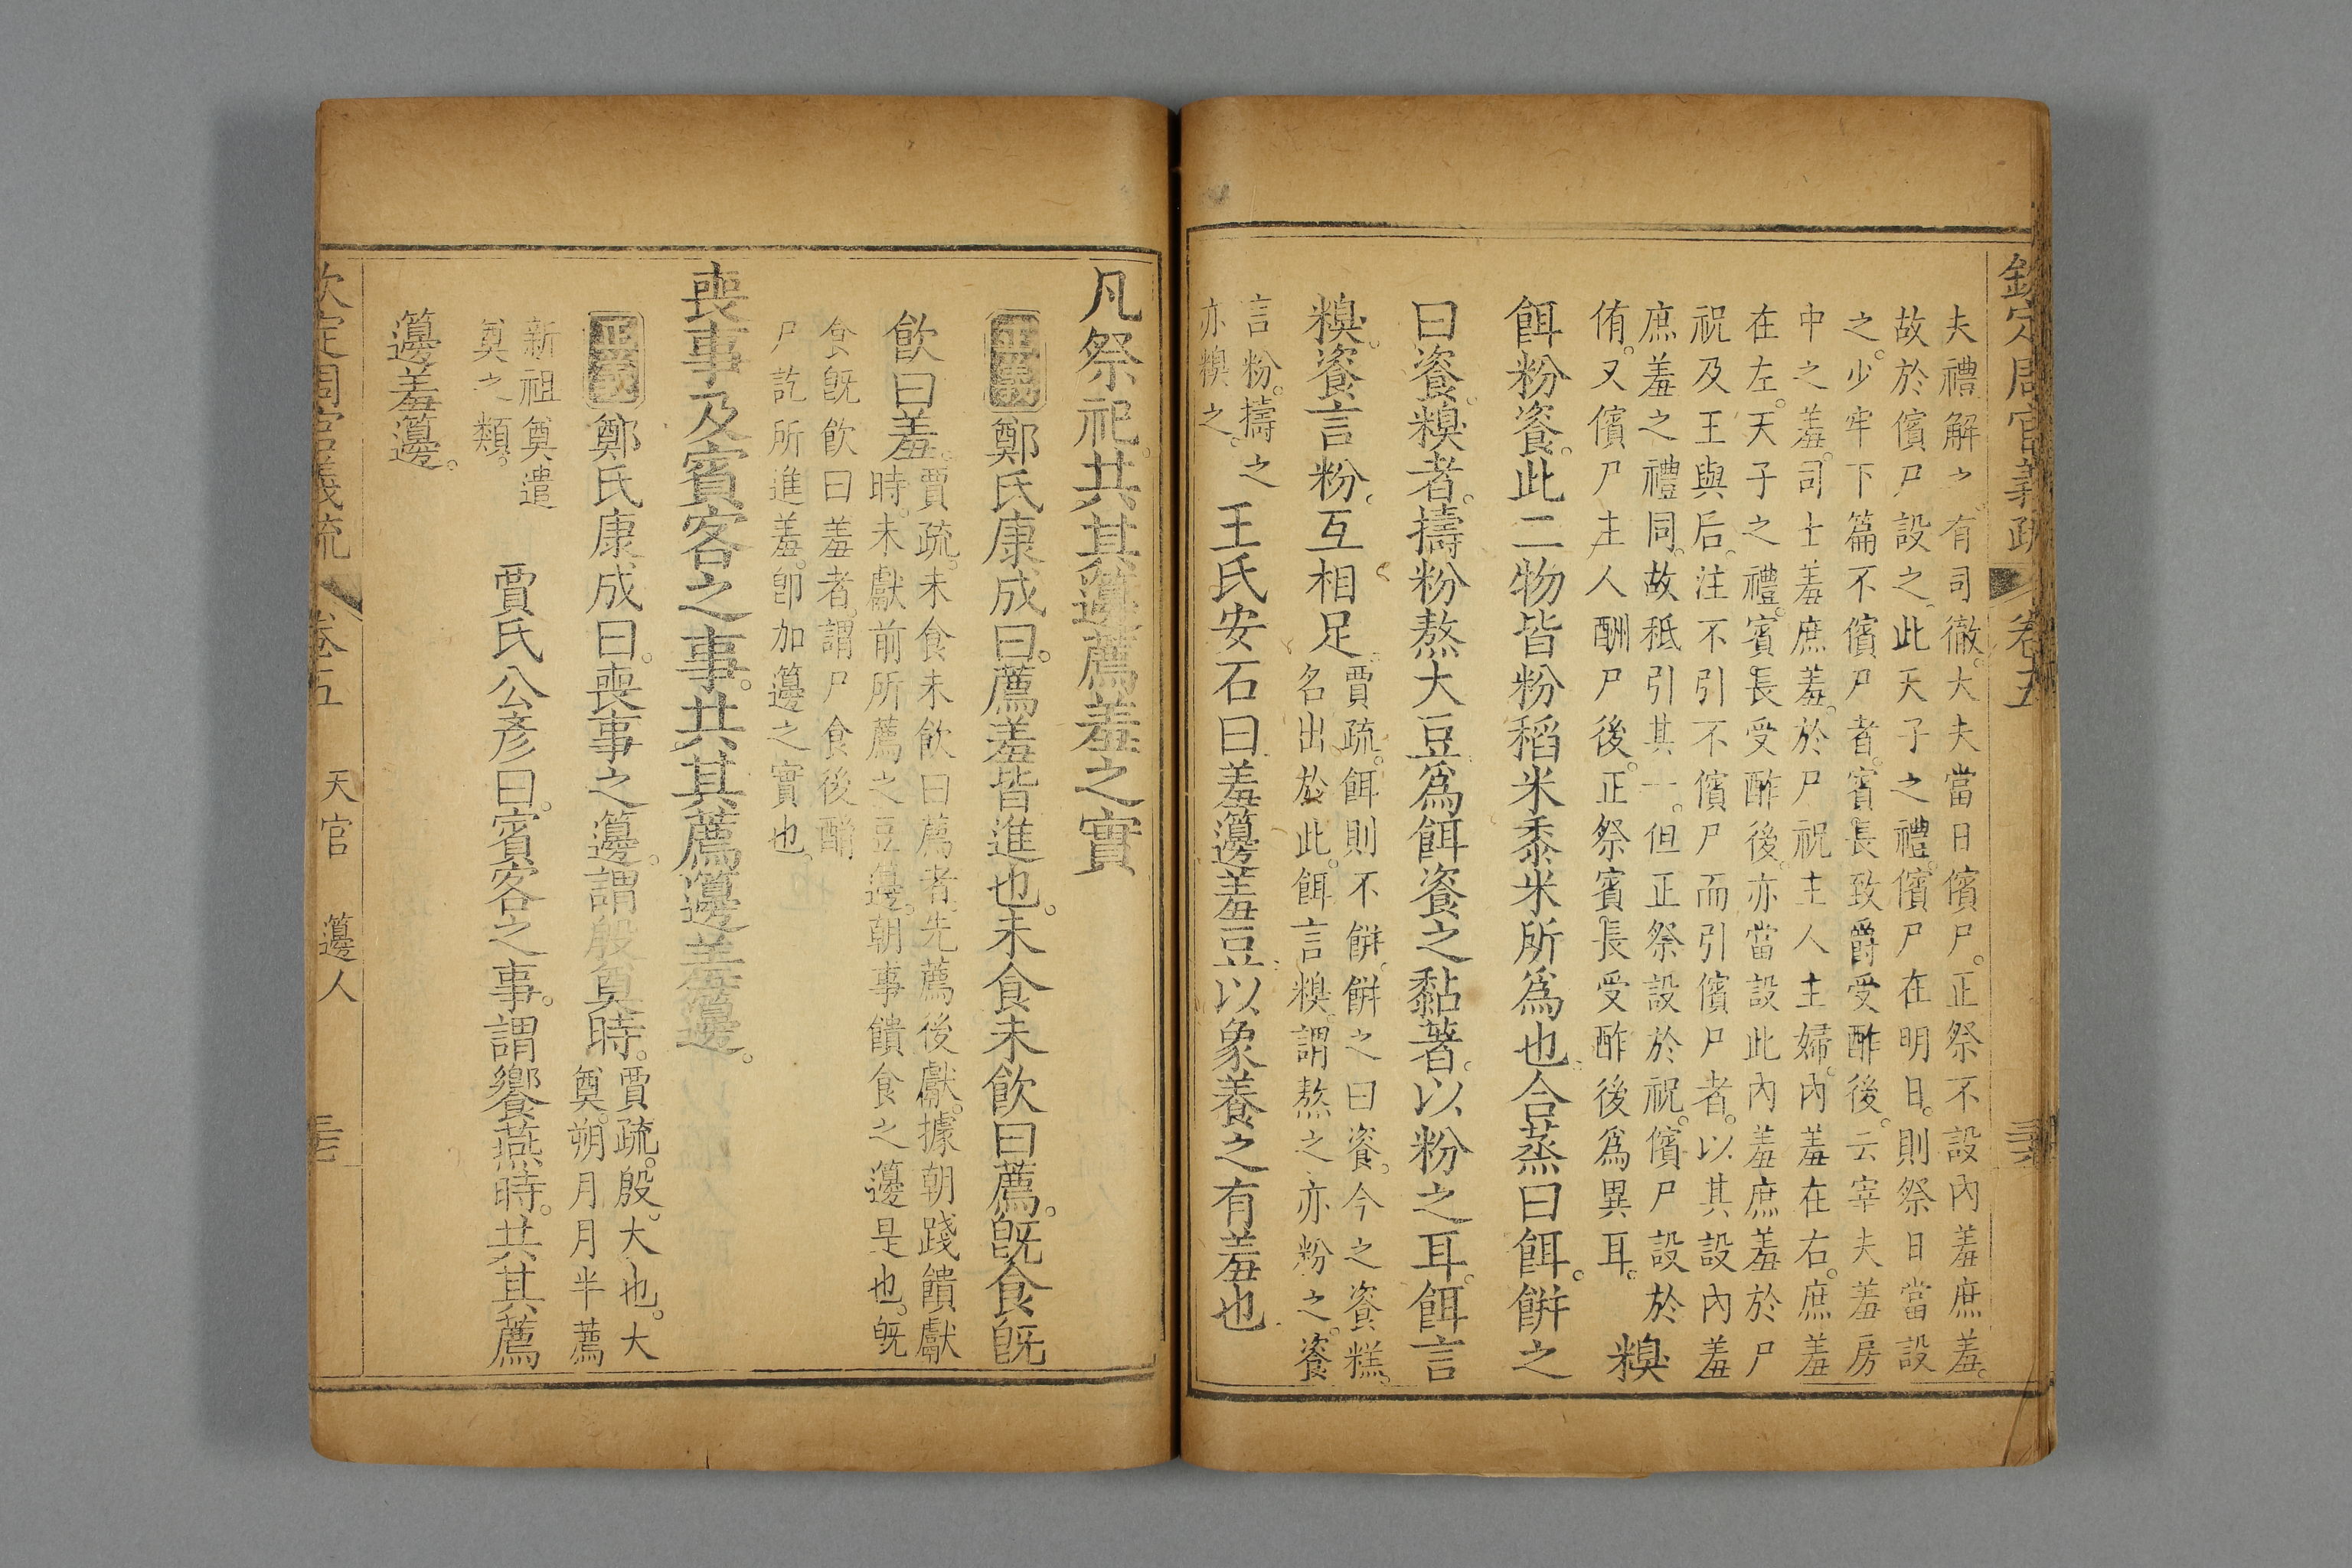 欽定周官義疏 卷五
夫禮解之有司徹。大夫當日儐尸。正祭不設內羞庶羞。
故於儐尸設之。此天子之禮。儐尸在明日。則祭日當設
之。少牢下篇不儐尸者。賓長致爵受酢後。云宰夫羞房
中之羞。司士羞庶羞。於尸祝主人主婦。內羞在右。庶羞
在左。天子之禮。賓長受酢後。亦當設此內羞庶羞於尸
祝及王與后。注不引不儐尸而引儐尸者。以其設內羞
庶羞之禮同。故秪引其一。但正祭設於祝。儐尸設於
侑。又儐尸主人酬尸後。正祭賓長受酢後為異耳。
糗
餌粉餈。此二物皆粉稻米黍米所為也。合蒸曰餌。餅之
曰餈。糗者。擣粉熬大豆為餌餈之黏著。以粉之耳。餌言
糗。餈言粉。互相足。
賈疏。餌則不餅。餅之曰餈。今之餈糕。
名出於此。餌言糗。謂熬之亦粉之。餈
言粉。擣之
亦糗之。
王氏安石曰羞籩羞豆以象養之有羞也
凡祭祀。共其籩薦羞之實
正義 鄭氏康成曰。薦羞皆進也。未食未飲曰薦。旣食旣
飲曰羞。
賈疏。未食未飲曰薦者。先薦後獻。據朝踐饋獻
時。未獻前所薦之豆籩。朝事饋食之籩是也。旣
食旣飲曰羞者。謂尸食後酳
尸訖所進羞。卽加籩之實也。
喪事及賓客之事。共其薦籩羞籩。
正義 鄭氏康成曰。喪事之籩。謂殷奠時。
賈疏。殷。大也。大
奠。朔月月半薦
新祖奠遣
奠之類。
賈氏公彥曰。賓客之事。謂饗燕時。共其薦
籩羞籩。
欽定周官義疏 卷五 天官 籩人